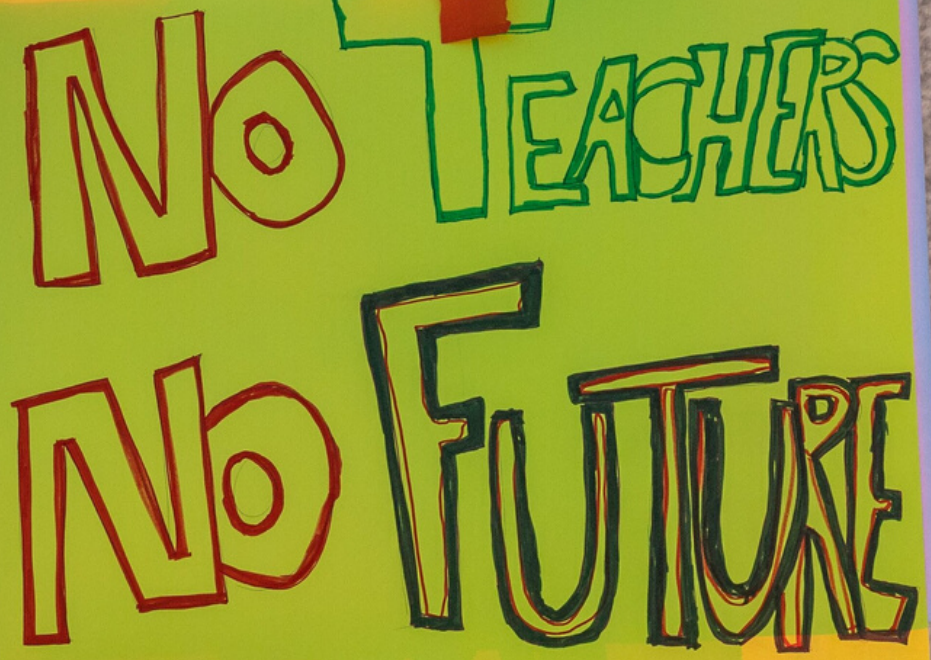 No TEACHERS
No FUTURE